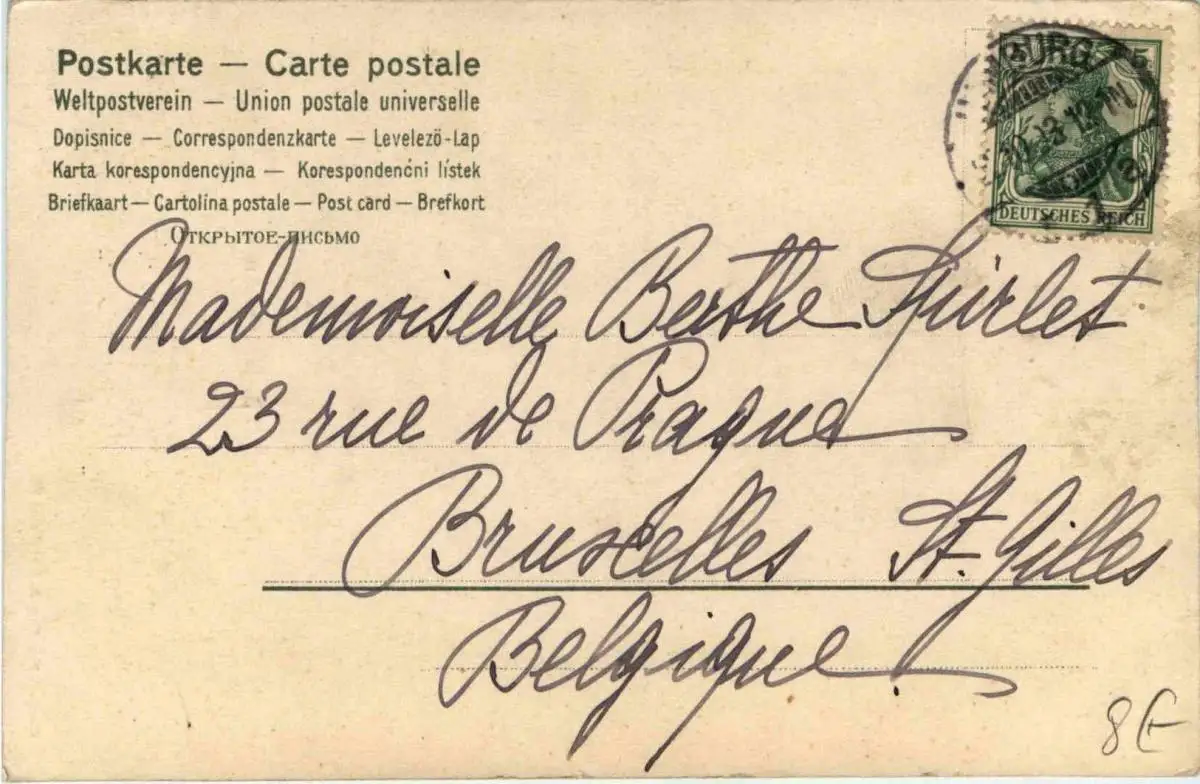 Postkarte — Carte postale
Weltpostverein — Union postale universelle
Dopisnice — Correspondenzkarte — Levelező-Lap
Karta korespondencyjna — Korespondenćni lístek
Briefkaart — Cartolina postale — Post card — Brefkort
Открытое-письмо
BURG
5
DEUTSCHES REICH
Mademoiselle Berthe Spirlet
23 rue de Prague
Bruxelles St. Gilles
Belgique
8€